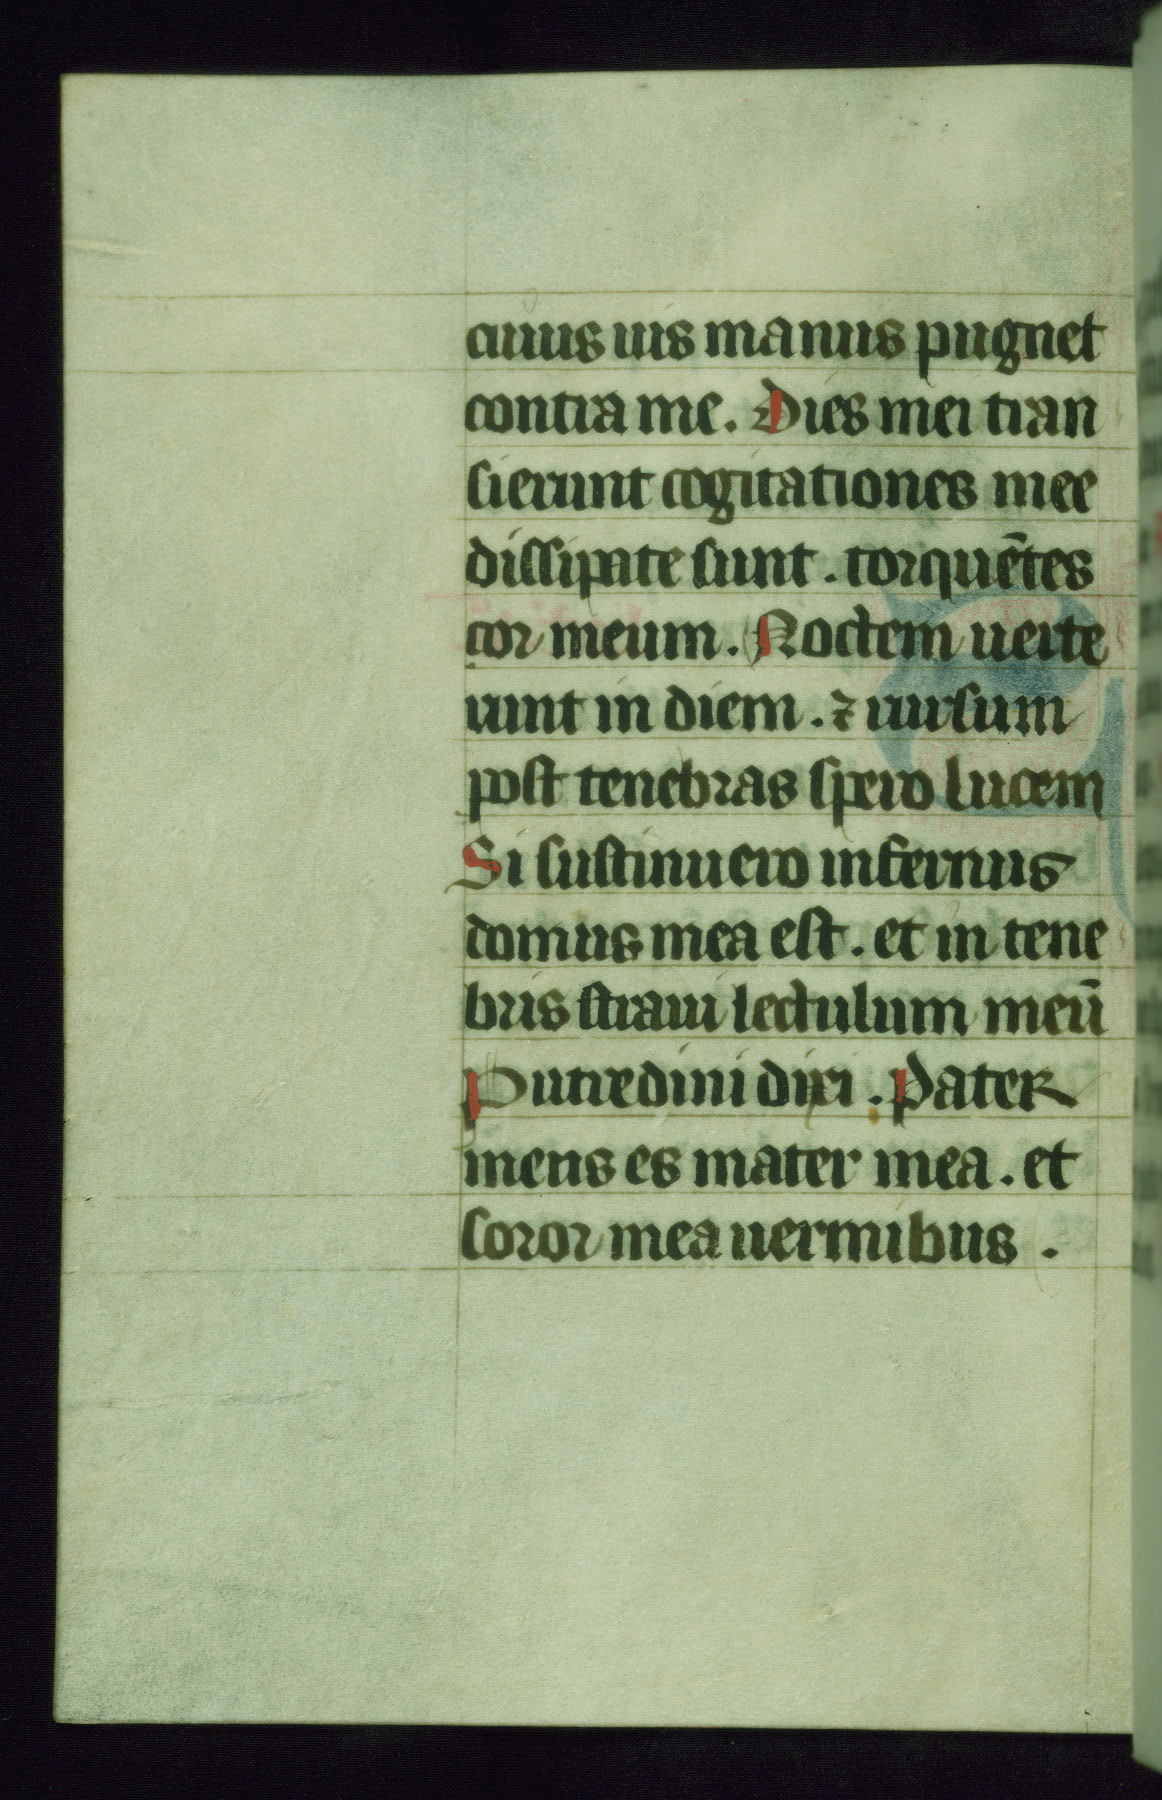 cuius uis manus pugnet
contra me. Dies mei tran
sierunt cogitationes mee
dissipate sunt. torquētes
cor meum. Noctem uerte
runt in diem. ⁊ rursum
post tenebras spero lucem
Si sustinuero infernus
domus mea est. et in tene
bris straui lectulum meū
Putredini dixi. Pater
meus es mater mea. et
soror mea uermibus.